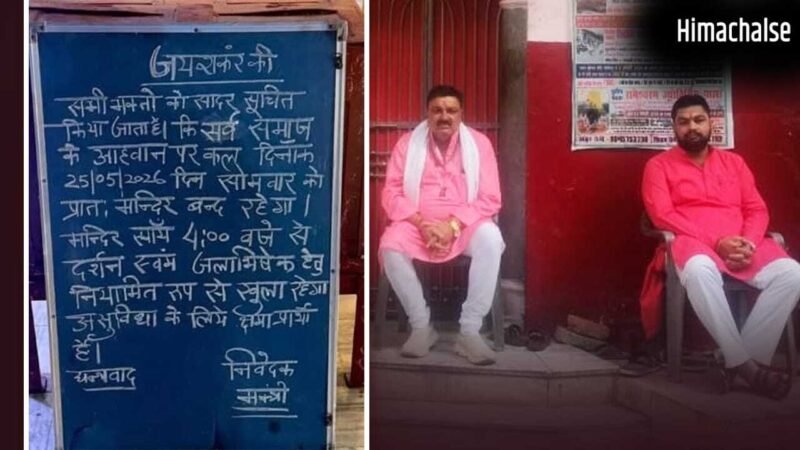 जय शंकर की
सभी भक्तो को सादर सुचित
किया जाता है। कि सर्व समाज
के आहवान पर कल दिनांक
25/05/2026 दिन सोमवार को
प्रात. मन्दिर बन्द रहेगा।
मन्दिर सॉय 4:00 बजे से
दर्शन स्वंम जलाभिषेक हेतु
नियामित रूप से खुला रहेगा
असुविधा के लिये क्षमा प्रार्थी
है।
धन्यवाद
निवेदक
मन्त्री
Himachalse